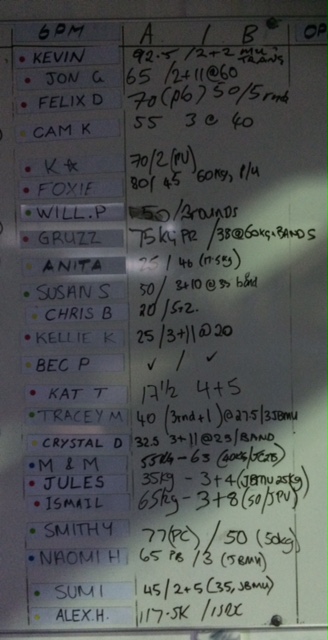 6PM A / B OP
KEVIN 92.5 / 2+2 MU TRANS
JON G 65 /2+11@60
FELIX D 70 (PB) 50/5 rnd
CAM K 55 3@ 40
K 70/2 (PU)
FOXIE 80/ 45 60kg, P/U
WILL.P 50/3rounds
GRUZZ 75kg PR /38@60kg.BANDS
ANITA 25 / 46 (17.5kg)
SUSAN S 50 / 3+10 @ 35 band
CHRIS B 20 / 5+2.
KELLIE K 25 / 3+11 @ 20
BEC P ✓ / ✓
KAT T 17½ 4+5
TRACEY M 40 (3rnd+1)@27.5/3JBMU
CRYSTAL D 32.5 3+11@25/BAND
M & M 55kg - 63
JULES 35kg - 3+4 (JBMU 25kg)
ISMAIL 65kg - 3+8 (50/JPU)
SMITHY 77(PC) / 50 (50kg)
NAOMI H 65 PB /3 (JBMU)
SUMI 45/2+5 (35, JBMU)
ALEX.H. 117.5K /